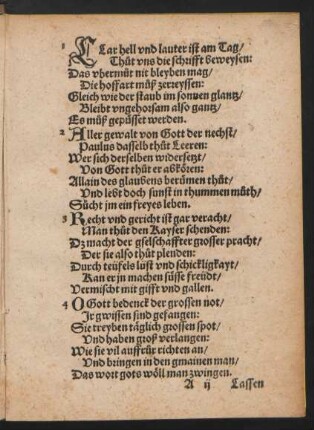 1 KLar hell vnd lauter ist am Tag/
Thůt vns die schrifft beweysen:
Das vbermůt nit bleyben mag/
Die hoffart můß zerreyssen:
Gleich wie der staub im sonnen glantz/
Bleibt vngehorsam also gantz/
Es můß gepüsset werden.
2 Aller gewalt von Gott der nechst/
Paulus dasselb thůt Leeren:
Wer sich derselben widersetzt/
Von Gott thůt er abkören:
Allain des glaubens berümen thůt/
Vnd lebt doch sunst in thummen můth/
Sůcht jm ein freyes leben.
3 Recht vnd gericht ist gar veracht/
Man thůt den Kayser schenden:
Dz macht der gselschaffter grosser pracht/
Der sie also thůt plenden:
Durch teüfels lüst vnd schickligkayt/
Kan er jn machen süsse freüdt/
Vermischt mit gifft vnd gallen.
4 O Gott bedenck der grossen not/
Jr gwissen sind gefangen:
Sie treyben täglich grossen spot/
Vnd haben groß verlangen:
Wie sie vil auffrůr richten an/
Vnd bringen in den gmainen man/
Das wort gots wöll man zwingen.
A ij Lassen